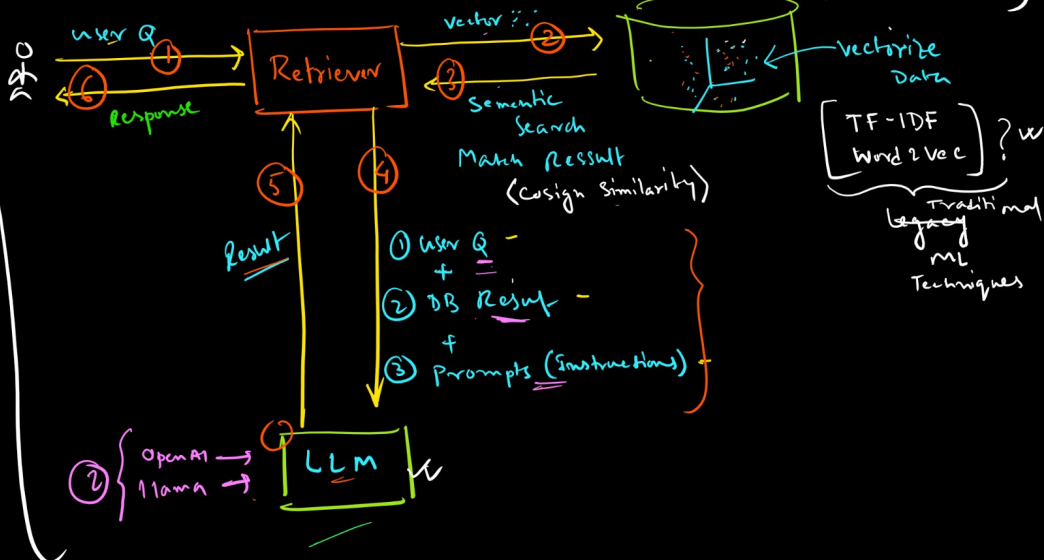 user Q
①
⑥
Response
Retriever
vector
②
③
Semantic
Search
Match Ressult
(Cosign Similarity)
vectorize
Data
TF-IDF
Word2Vec
?
Traditional
Legacy
ML
Techniques
⑤
④
Result
① user Q -
+
② DB Result -
+
③ Prompts (Instructions) -
② OpenAI
llama
LLM